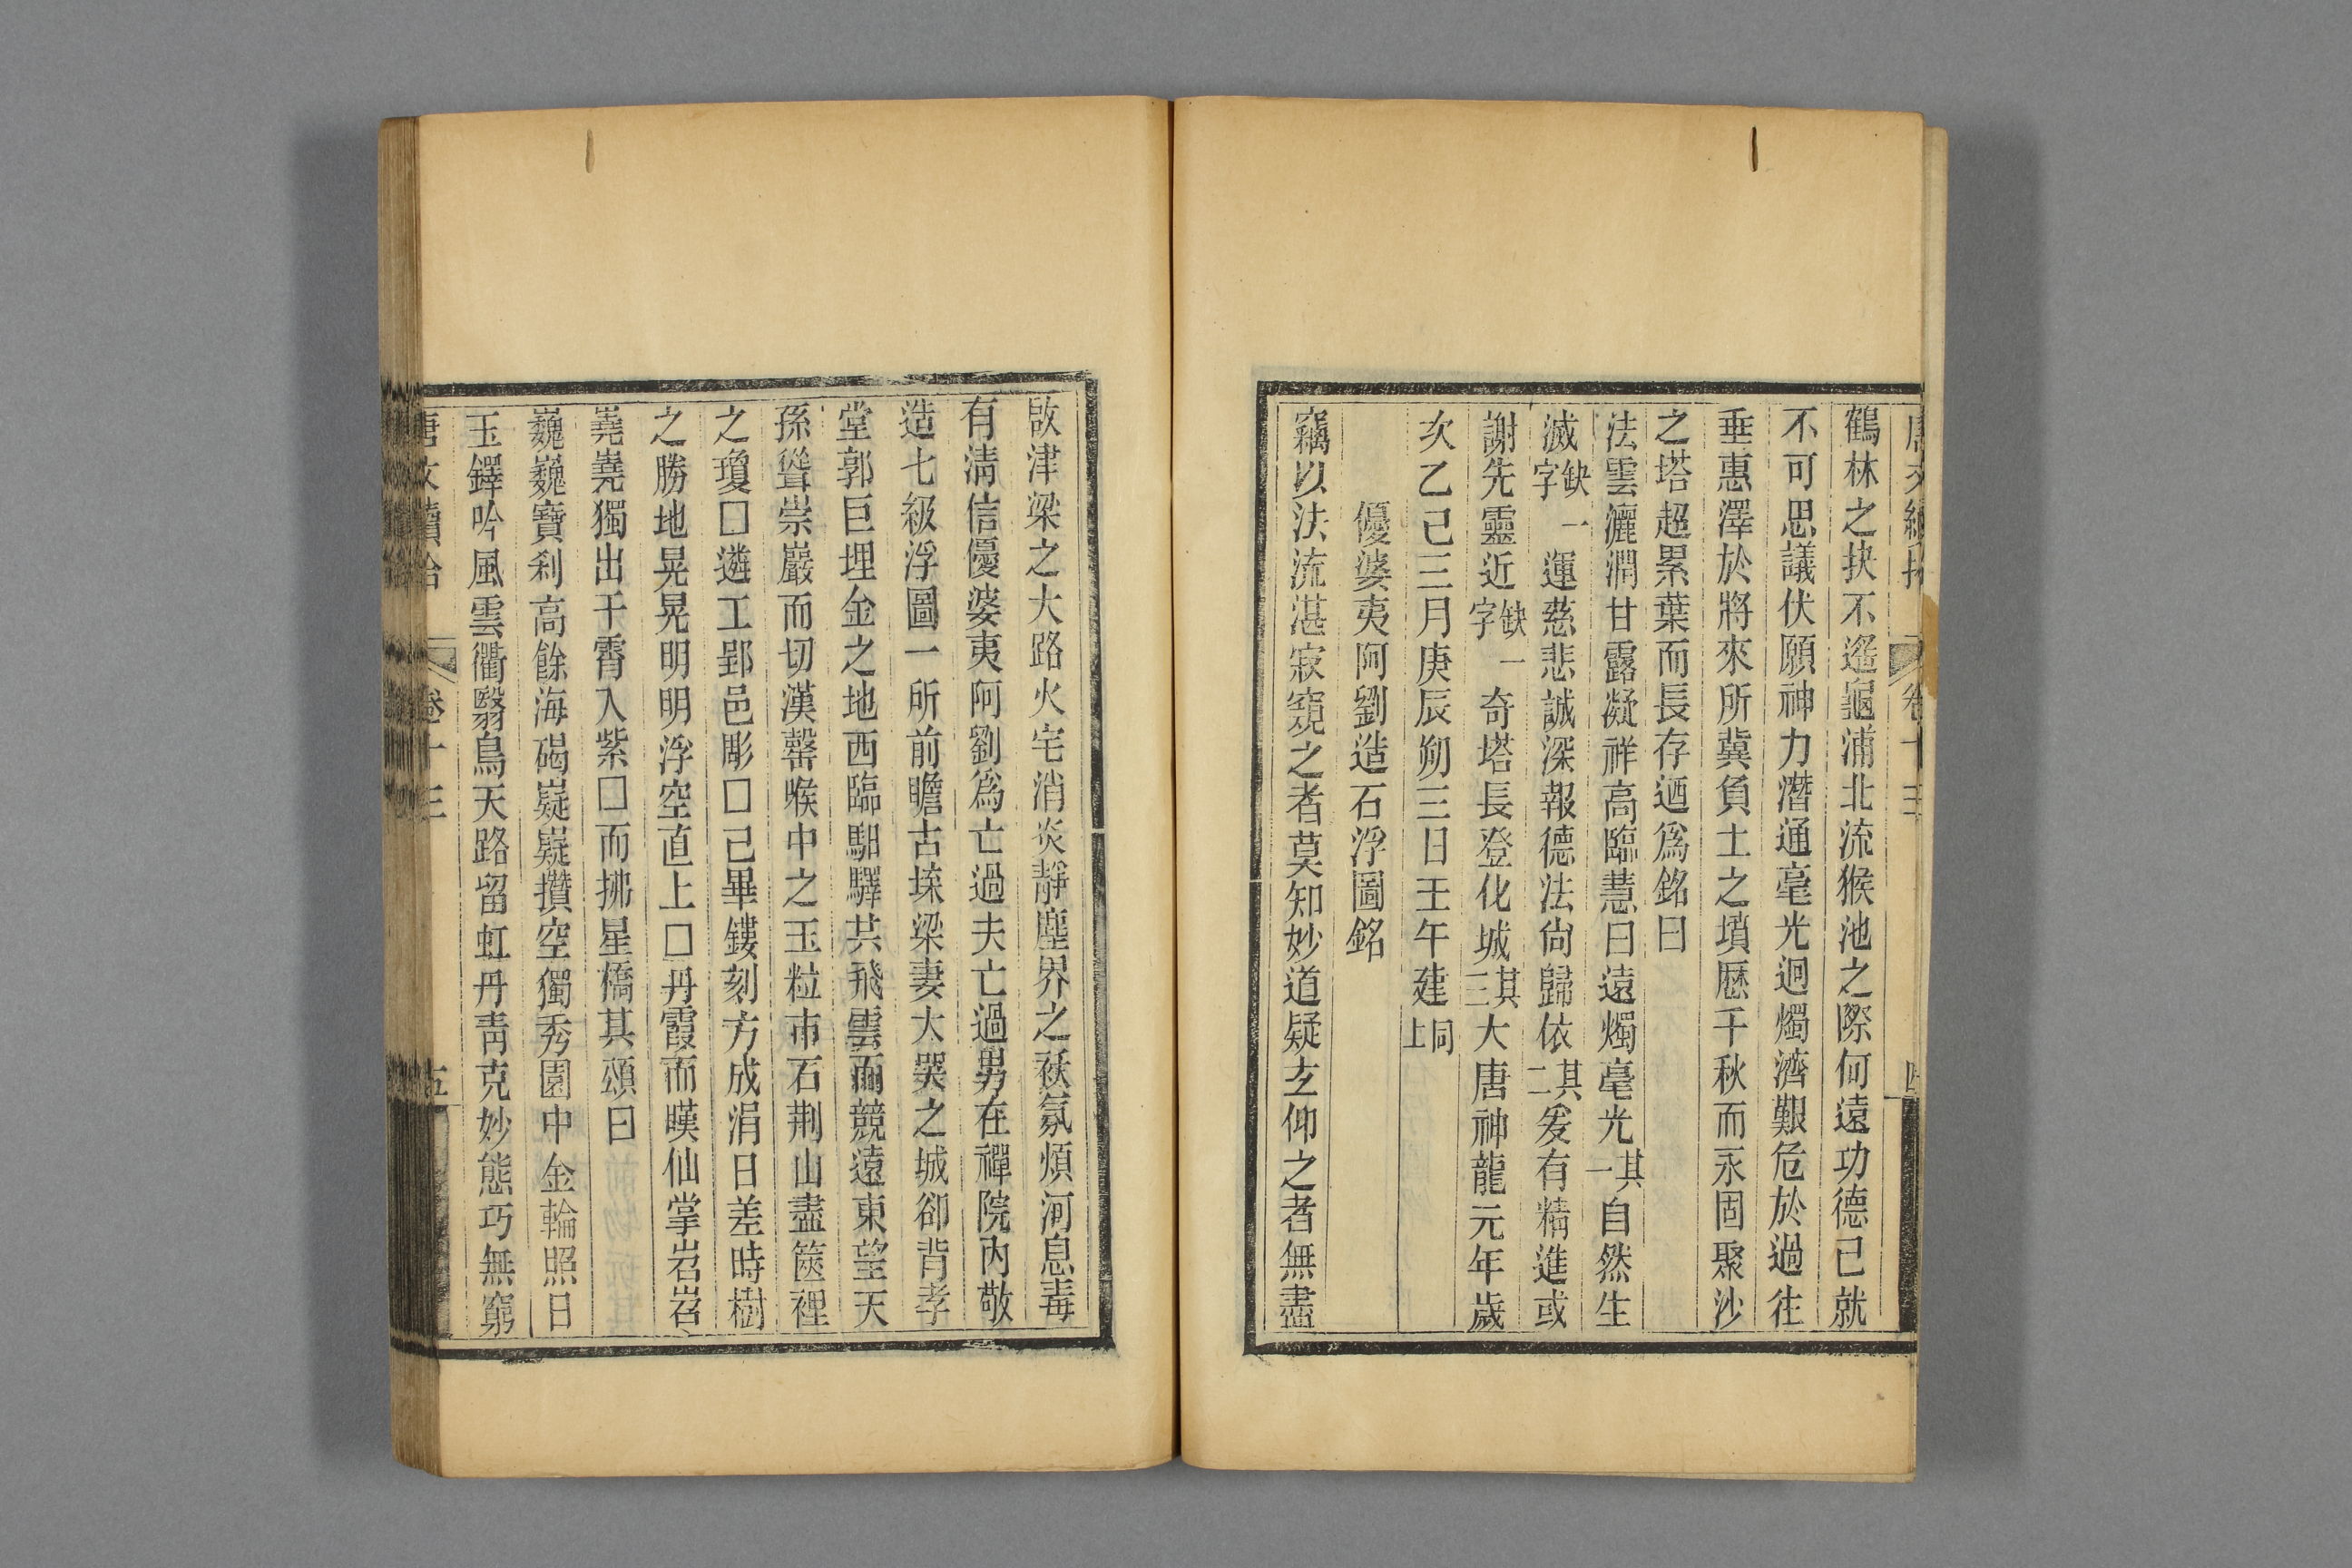 唐文續拾 卷十三 四
鶴林之抉不遙龜浦北流猴池之際何遠功德已就
不可思議伏願神力潛通毫光迥燭濟艱危於過往
垂惠澤於將來所冀負土之墳歷千秋而永固聚沙
之塔超累葉而長存迺為銘曰
法雲灑潤甘露凝祥高臨慧日遠燭毫光其一自然生
滅缺一字運慈悲誠深報德法尙歸依其二爰有精進或
謝先靈近缺一字奇塔長登化城其三大唐神龍元年歲
次乙已三月庚辰朔三日王午建同上
優婆夷阿劉造石浮圖銘
竊以法流湛寂窺之者莫知妙道疑玄仰之者無盡
啟津梁之大路火宅消炎靜塵界之祅氛煩河息毒
有淸信優婆夷阿劉爲亡過夫亡過男在禪院內敬
造七級浮圖一所前瞻古堞梁妻大哭之城卻背孝
堂郭巨埋金之地西臨馹驛共飛雲而競遠東望天
孫聳崇巖而切漢罄喉中之玉粒市石荆山盡篋裡
之瓊□遴工郢邑彫□已畢鏤刻方成涓日差時樹
之勝地晃晃明明浮空直上□丹霞而暎仙掌岧岧
嶤嶤獨出干霄入紫□而拂星橋其頌曰
巍巍寶刹高餘海碣嶷嶷攢空獨秀園中金輪照日
玉鐸吟風雲衢翳鳥天路留虹丹靑克妙態巧無窮
唐文續拾 卷十三 五